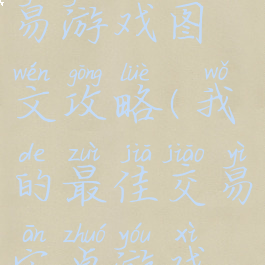 易游戏图
wén gōng lüè wǒ
文攻略(我
de zuì jiā jiāo yì
的最佳交易
ān zhuó yóu xì
安卓游戏